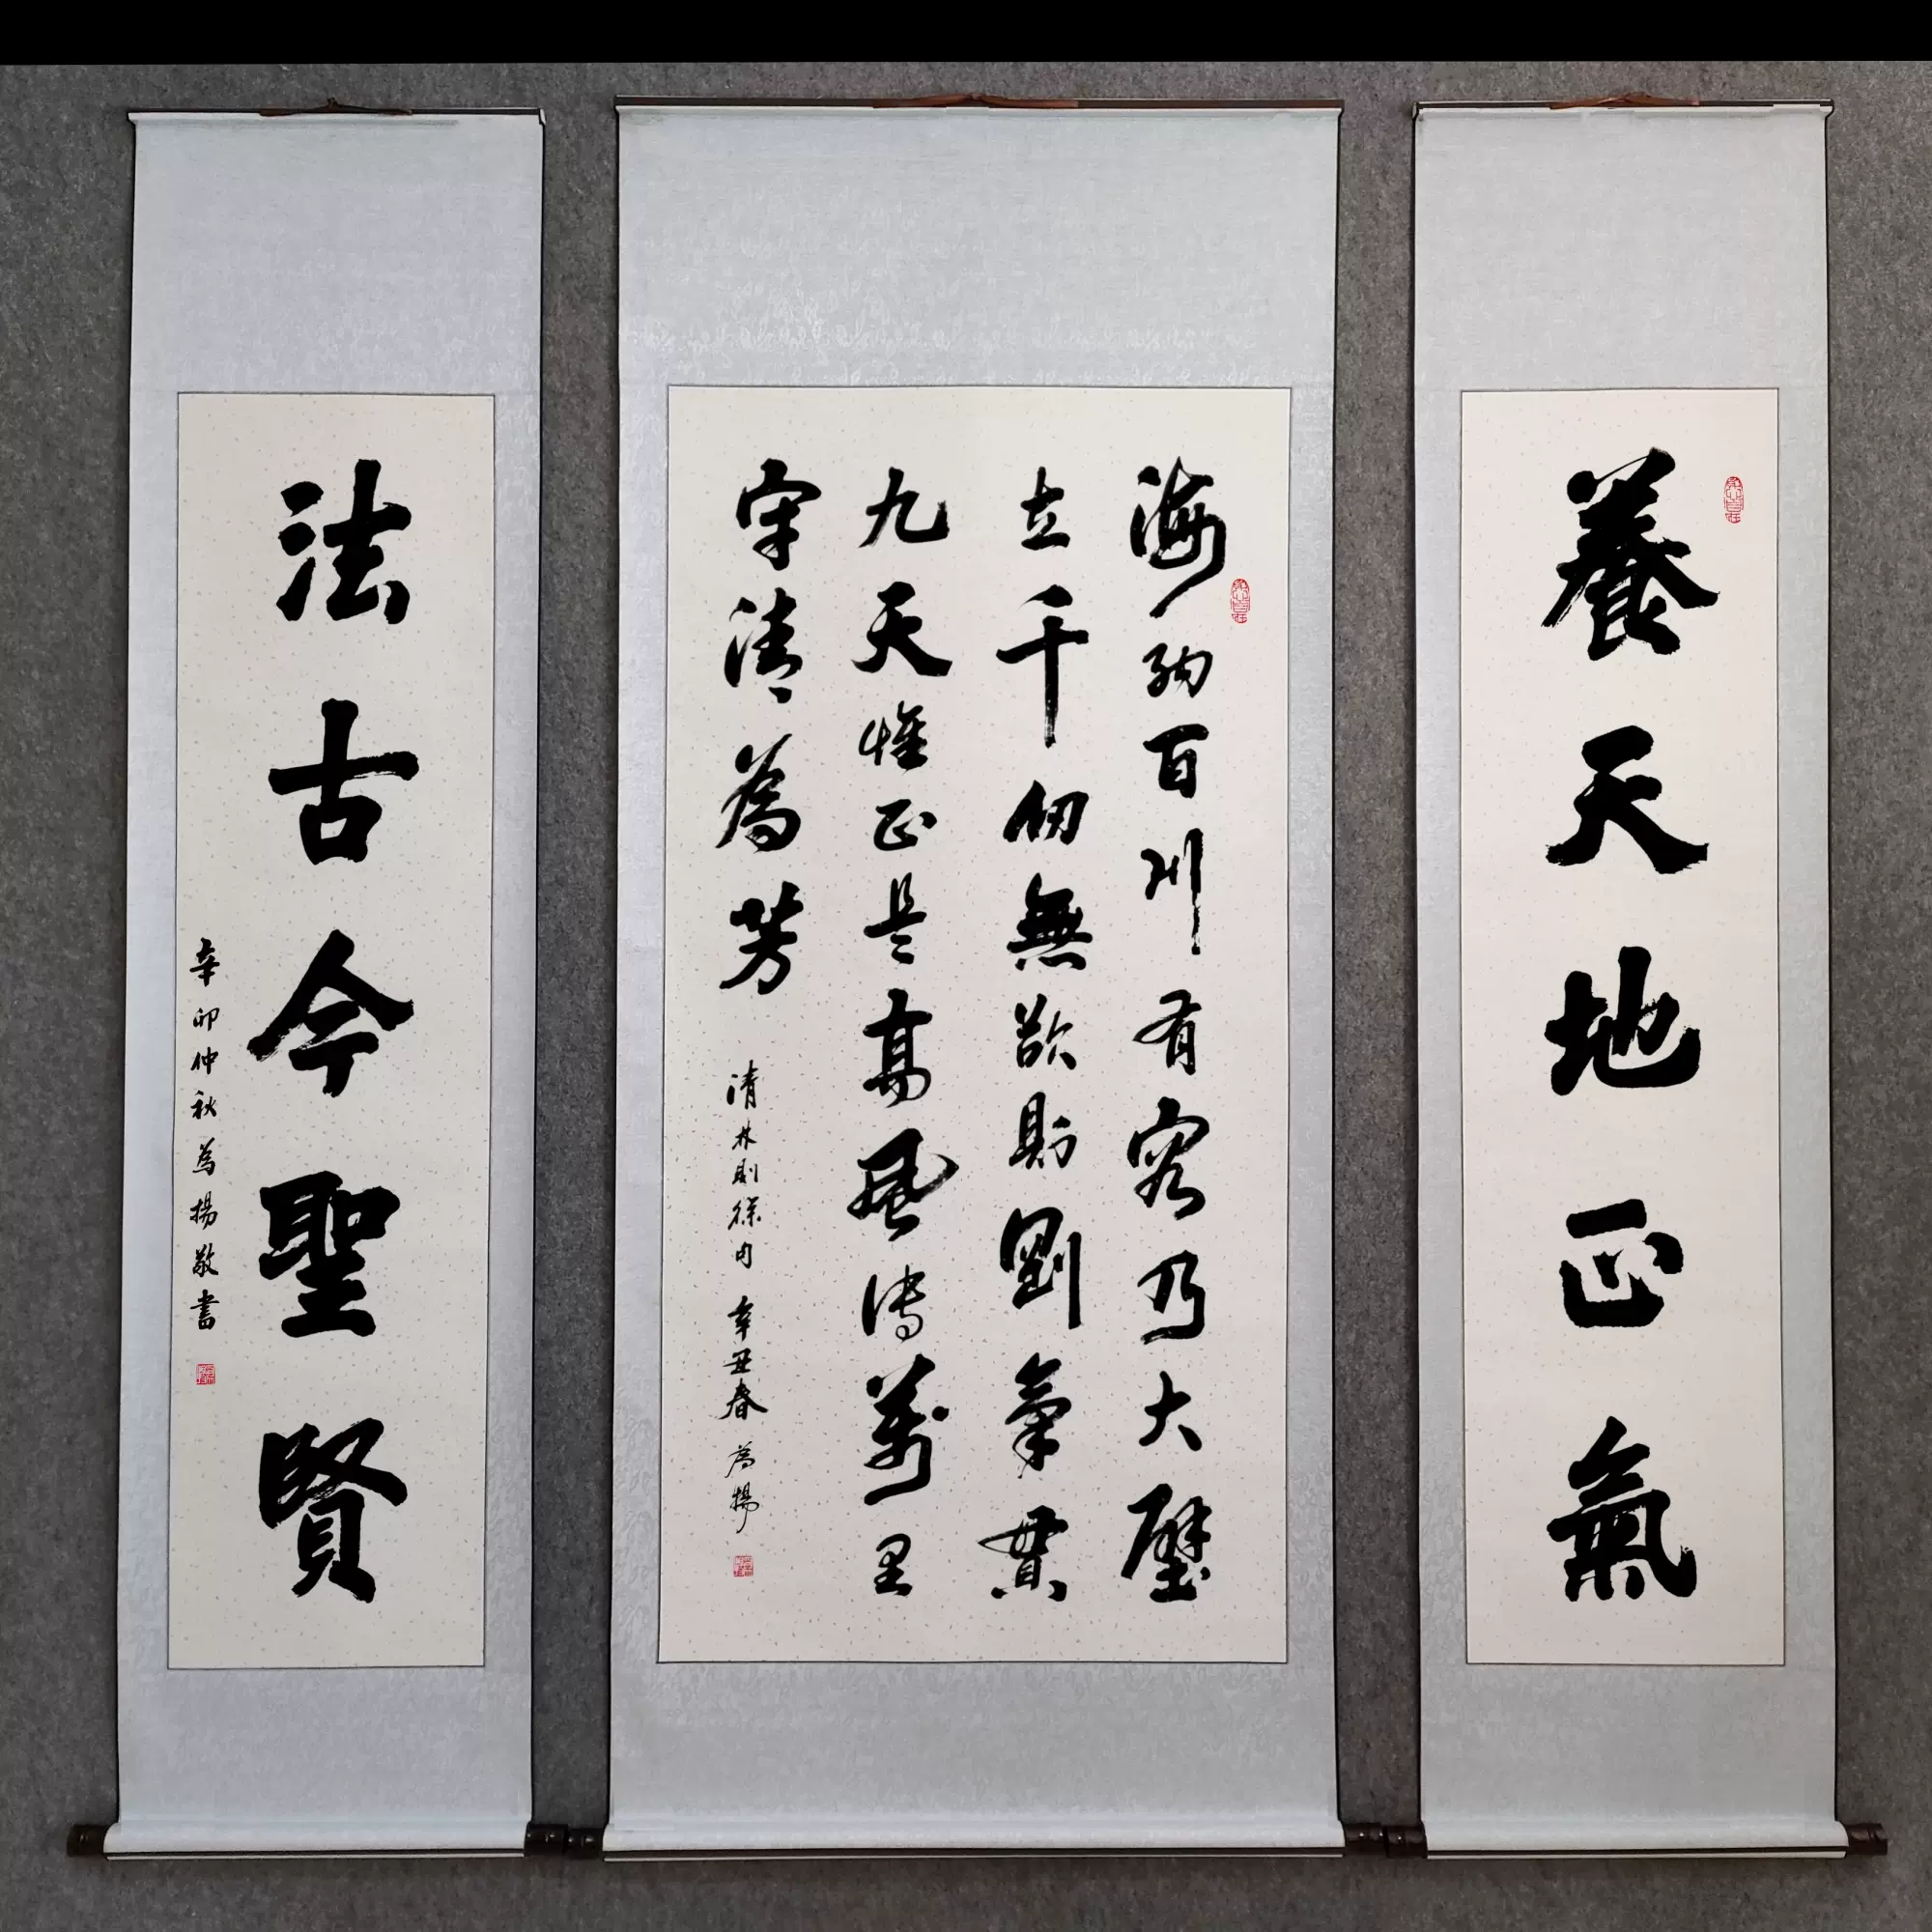 養天地正氣
海納百川有容乃大壁
立千仞無欲則剛氣貫
九天惟正是高風傳萬里
守清為芳
清林則徐句 辛丑春 為揚
法古今聖賢
辛卯仲秋為揚敬書